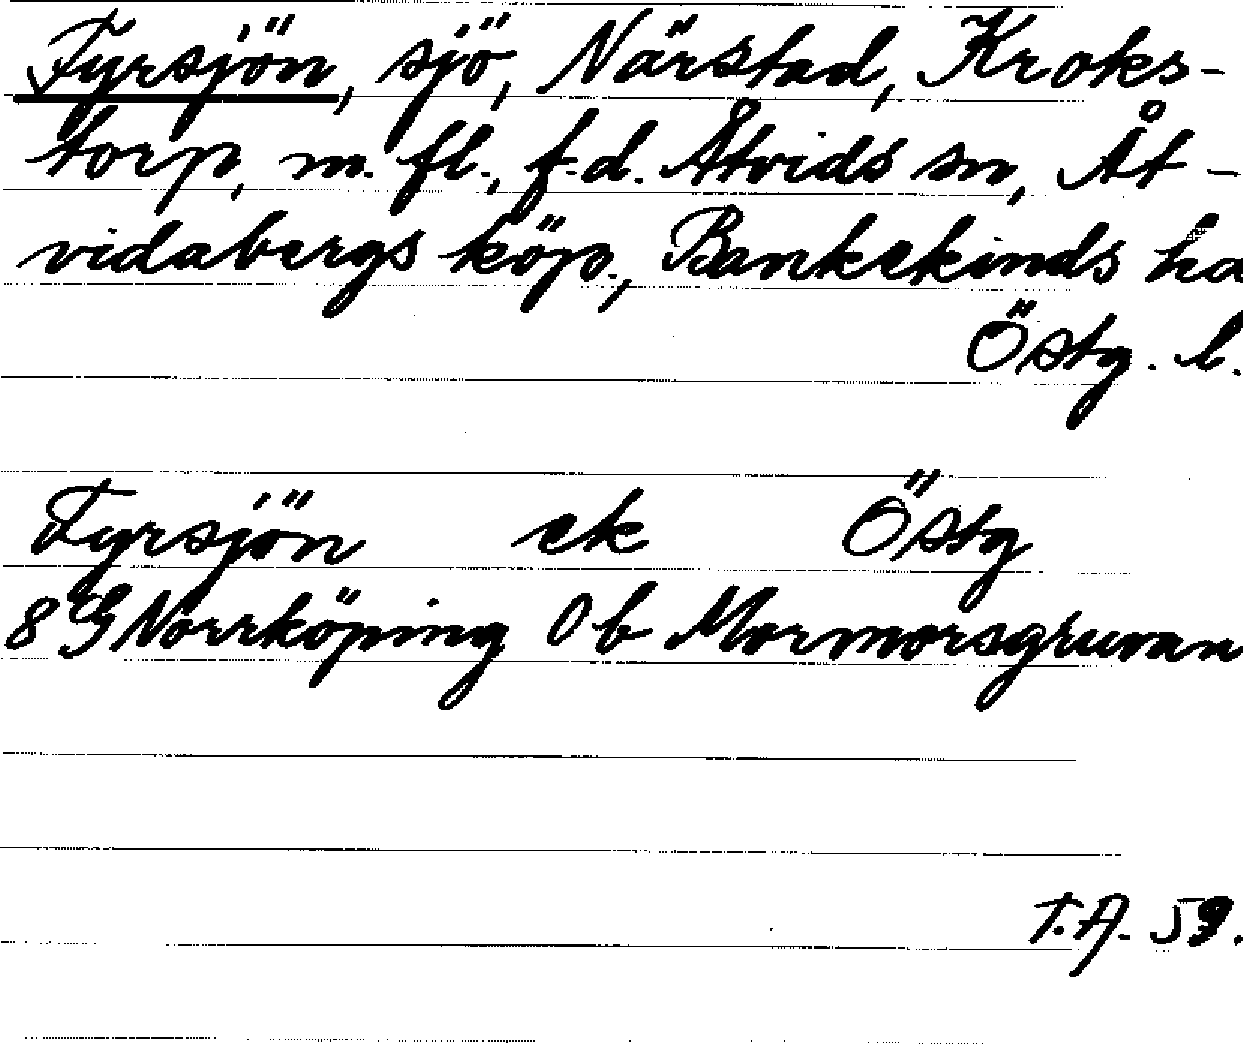 Fyrsjön, sjö, Närstad, Kroks-
torp, m. fl., f.d. Åtvids sn, Åt-
vidabergs köp., Bankekinds hd
Östg. l.
Fyrsjön ek Östg
8 G Norrköping 0b Mormorsgruvan
T.A. 59.